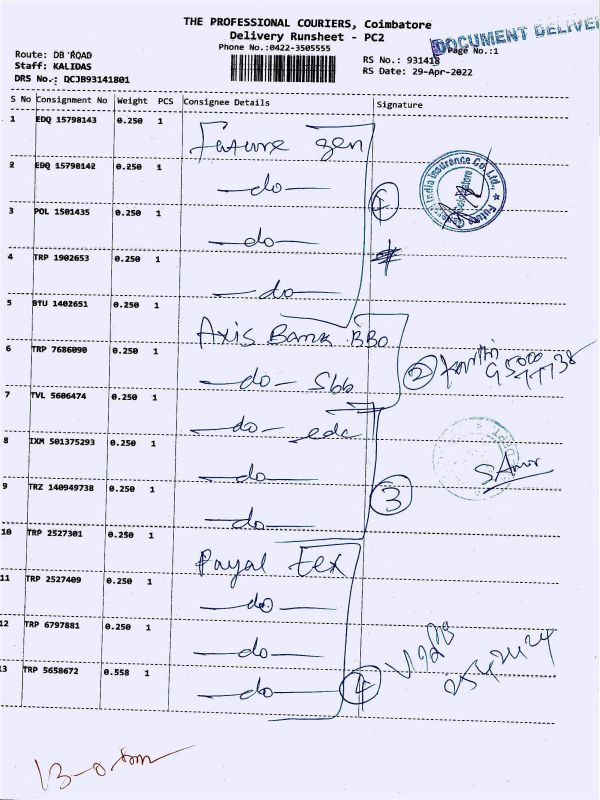 THE PROFESSIONAL COURIERS, Coimbatore
Delivery Runsheet - PC2
Phone No.:0422-3505555
DOCUMENT DELIVE
Page No.:1
Route: DB ROAD
Staff: KALIDAS
DRS No.: QCJB93141801
RS No.: 931418
RS Date: 29-Apr-2022
S No Consignment No Weight PCS Consignee Details Signature
1 EDQ 15798143 0.250 1 Future gen
2 EDQ 15798142 0.250 1 —do—
3 POL 1501435 0.250 1 —do—
4 TRP 1902653 0.250 1 —do—
5 BTU 1402651 0.250 1 Axis Bank BBO
6 TRP 7686090 0.250 1 —do— Sbb
7 TVL 5606474 0.250 1 —do— edc
8 IXM 501375293 0.250 1 —do—
9 TRZ 140949738 0.250 1 —do—
10 TRP 2527301 0.250 1 Payal tex
11 TRP 2527409 0.250 1 —do—
12 TRP 6797881 0.250 1 —do—
13 TRP 5658672 0.558 1 —do—
1
India Insurance Co. Ltd., ★ Future
Coimbatore
2
3
4